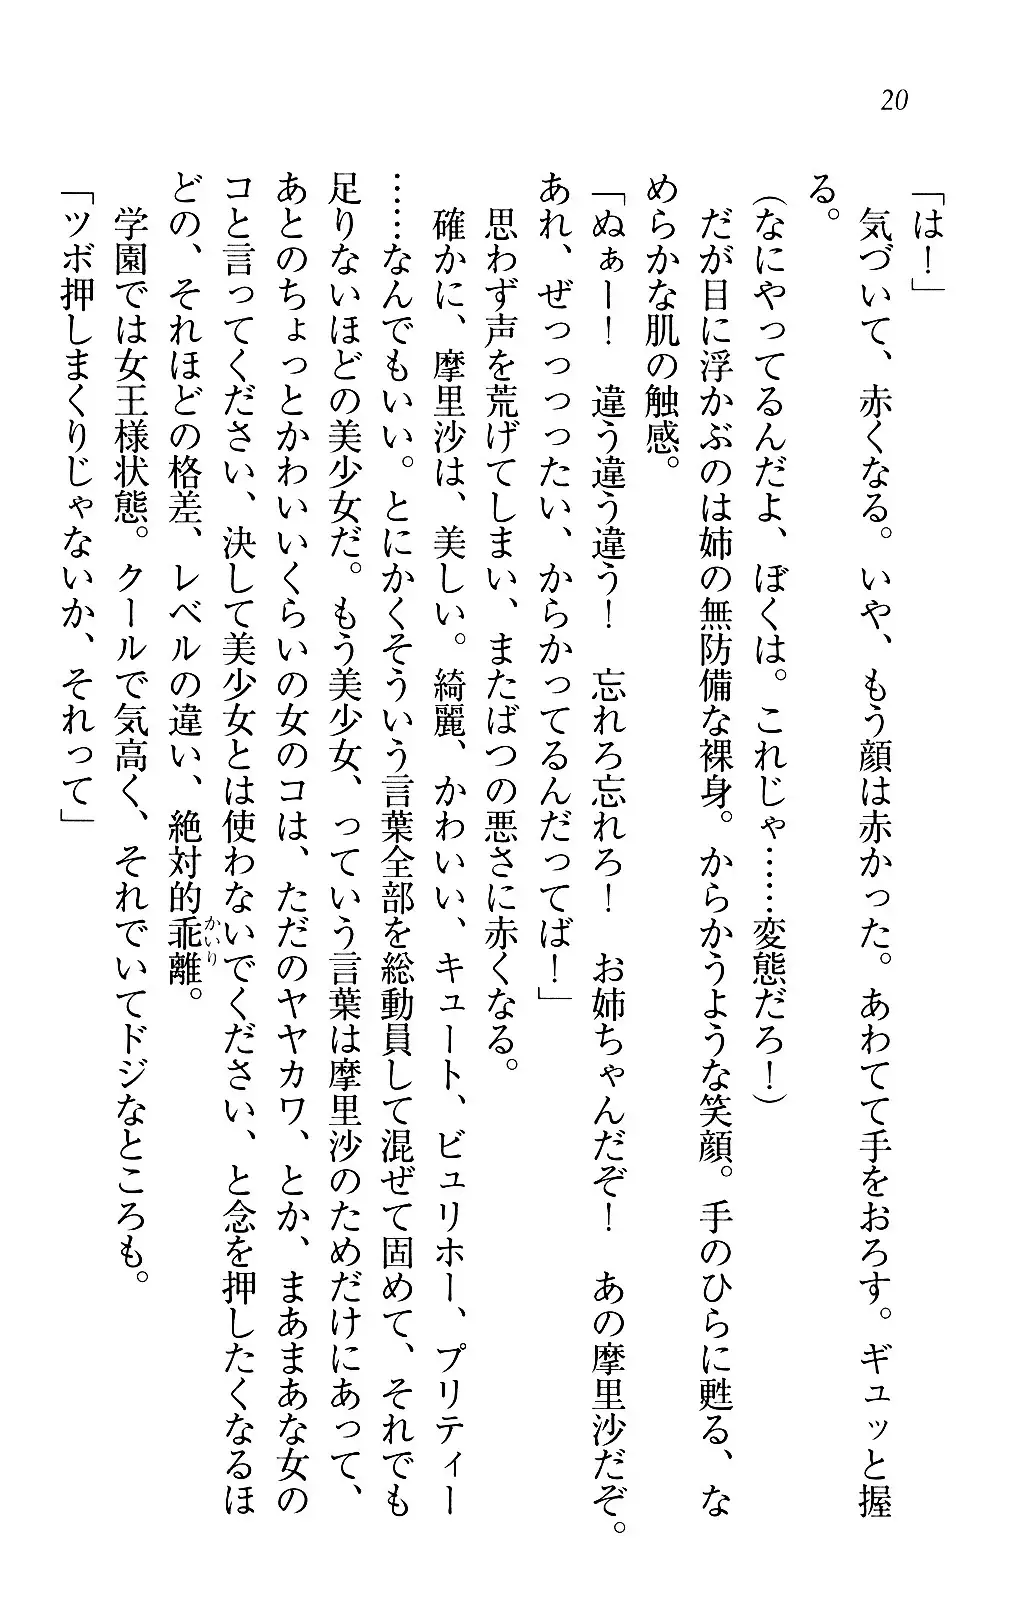 20
「は！」
気づいて、赤くなる。いや、もう顔は赤かった。あわてて手をおろす。ギュッと握
る。
（なにやってるんだよ、ぼくは。これじゃ……変態だろ！）
だが目に浮かぶのは姉の無防備な裸身。からかうような笑顔。手のひらに甦る、な
めらかな肌の触感。
「ぬぁー！　違う違う違う！　忘れろ忘れろ！　お姉ちゃんだぞ！　あの摩里沙だぞ。
あれ、ぜっっっったい、からかってるんだってば！」
思わず声を荒げてしまい、またばつの悪さに赤くなる。
確かに、摩里沙は、美しい。綺麗、かわいい、キュート、ビュリホー、プリティー
……なんでもいい。とにかくそういう言葉全部を総動員して混ぜて固めて、それでも
足りないほどの美少女だ。もう美少女、っていう言葉は摩里沙のためだけにあって、
あとのちょっとかわいいくらいの女のコは、ただのヤヤカワ、とか、まあまあな女の
コと言ってください、決して美少女とは使わないでください、と念を押したくなるほ
どの、それほどの格差、レベルの違い、絶対的乖離かいり。
学園では女王様状態。クールで気高く、それでいてドジなところも。
「ツボ押しまくりじゃないか、それって」